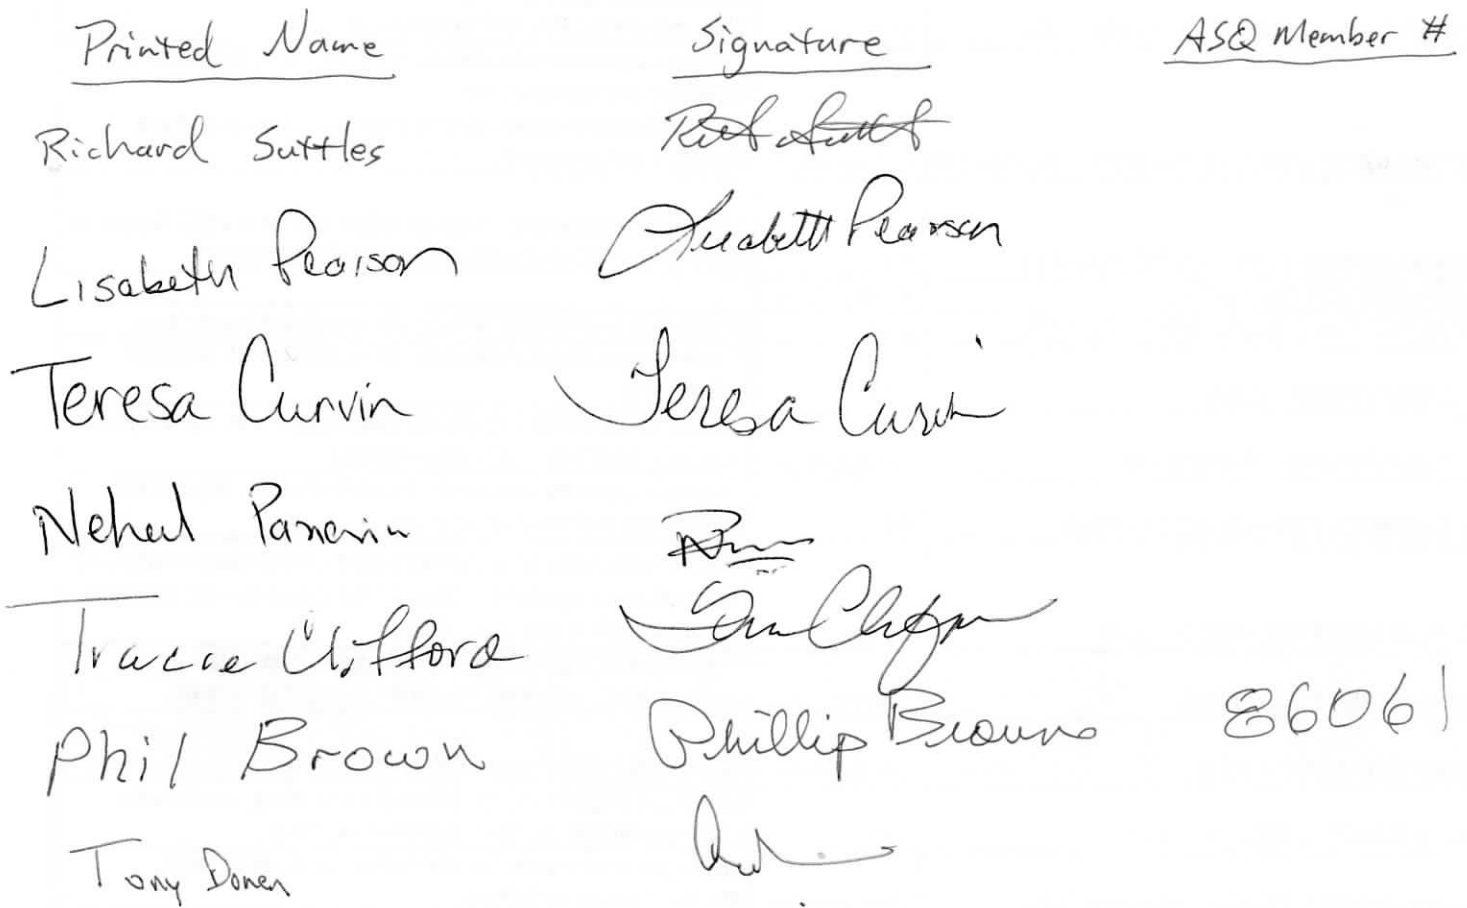 Printed Name Signature ASQ Member #
Richard Suttles
Lisabeth Pearson Lisabeth Pearson
Teresa Curvin Teresa Curvin
Nehul
Tracie Clifford
Phil Brown Phillip Brown 86061
Tony Donen